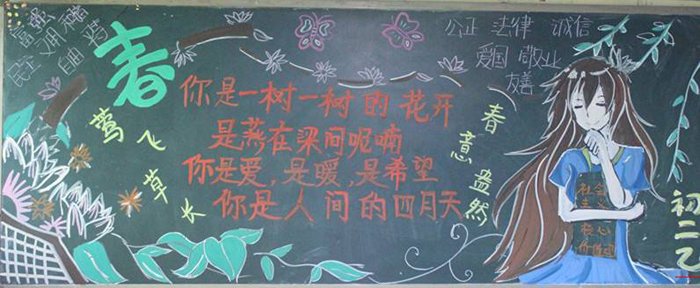 富强
文明 和谐
民主 自由
春
莺飞草长
你是一树一树的花开
是燕在梁间呢喃
你是爱,是暖,是希望
你是人间的四月天
春意盎然
公正 法律 诚信
爱国 敬业
友善
社会
主义
核心
价值观
初二乙